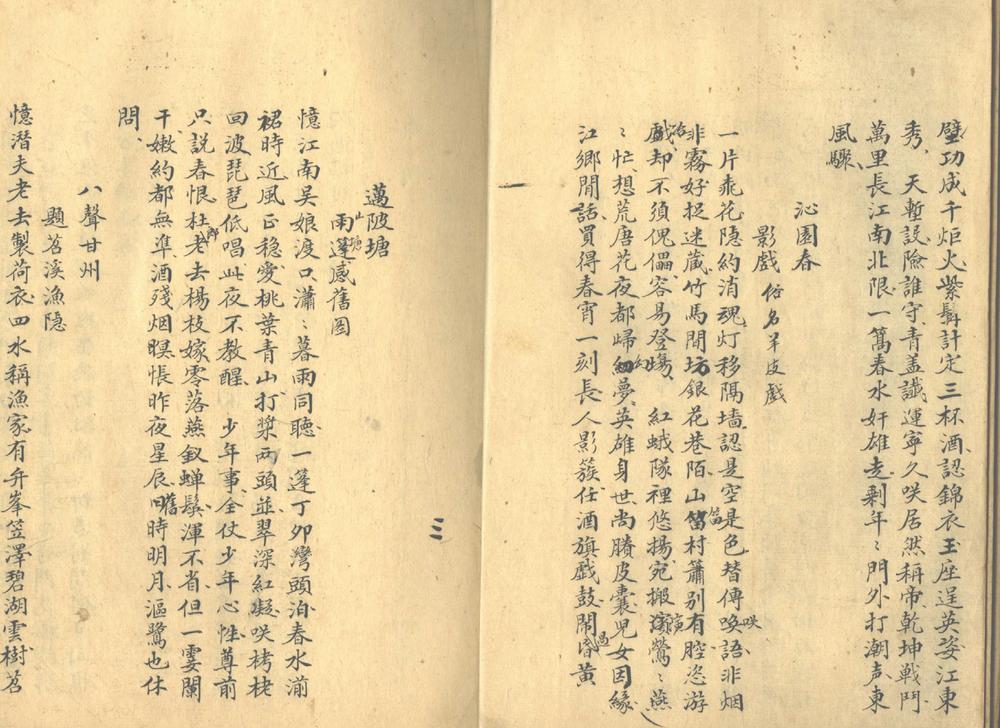 壁功成千炬火紫髯計定三杯酒認錦衣玉座逞英姿江東
秀、天塹設險誰守青盖讖運寧久咲居然稱帝乾坤戰鬥
萬里長江南北限一篙春水奸雄走剩年〻門外打潮声東
風驟、
沁園春
影戲俗名羊皮戲
一片乖花隐約消魂灯移隔墙認是空是色替傳咲喚語非烟
非霧好捉迷蔵竹馬閒坊銀花巷陌山笛村簫别有腔恣游
冶戯却不須傀儡容易登塲、紅蛾隊裡悠揚宛搬演鶯〻燕
〻忙想荒唐花夜都歸幻夢英雄身世尚賸皮囊児女因緣
江鄉閒話買得春宵一刻長人影簇任酒旗戯鼓鬧過昏黄
三
邁陂塘
南塘山篷感舊圖
憶江南吴娘渡口瀟〻暮雨同聽一篷丁卯灣頭泊春水湔
裙時近風正稳愛桃葉青山打槳两頭並翠深紅凝咲栲栳
回波琵琶低唱此夜不教醒、少年事全仗少年心性尊前
只說春恨杜郎老去楊枝嫁零落燕釵蝉鬢渾不省但一霎闌
干嫩約都無準酒殘烟暝悵昨夜星辰舊時明月漚鷺也休
問、
八聲甘州
題苕溪漁隐
憶潜夫老去製荷衣四水稱漁家有弁峯笠澤碧湖雲樹苕